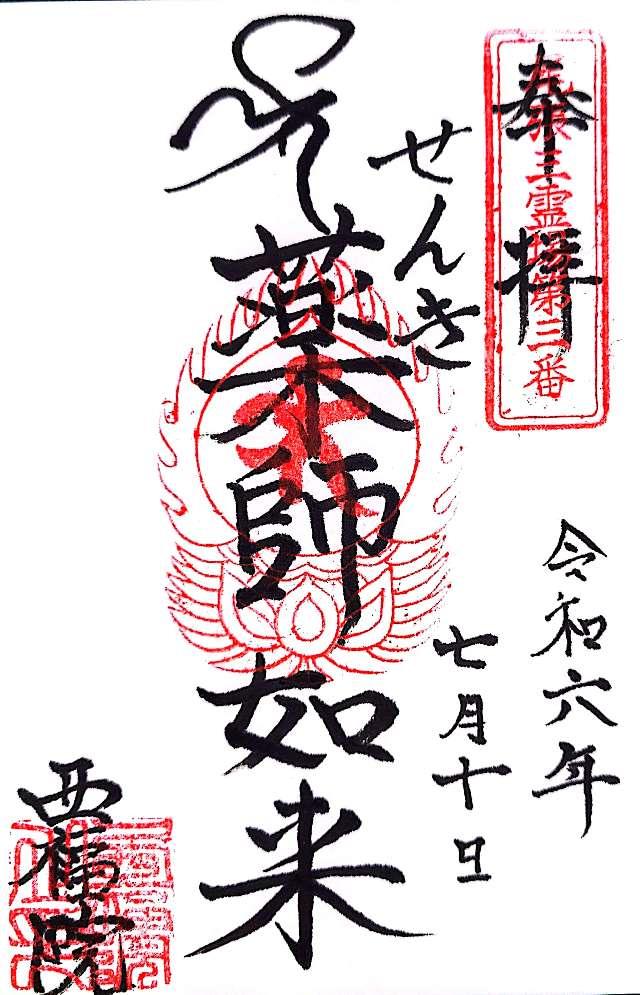 奉拝
尾張三霊場第三番
令和六年
七月十日
せんき
薬師如来
西福院